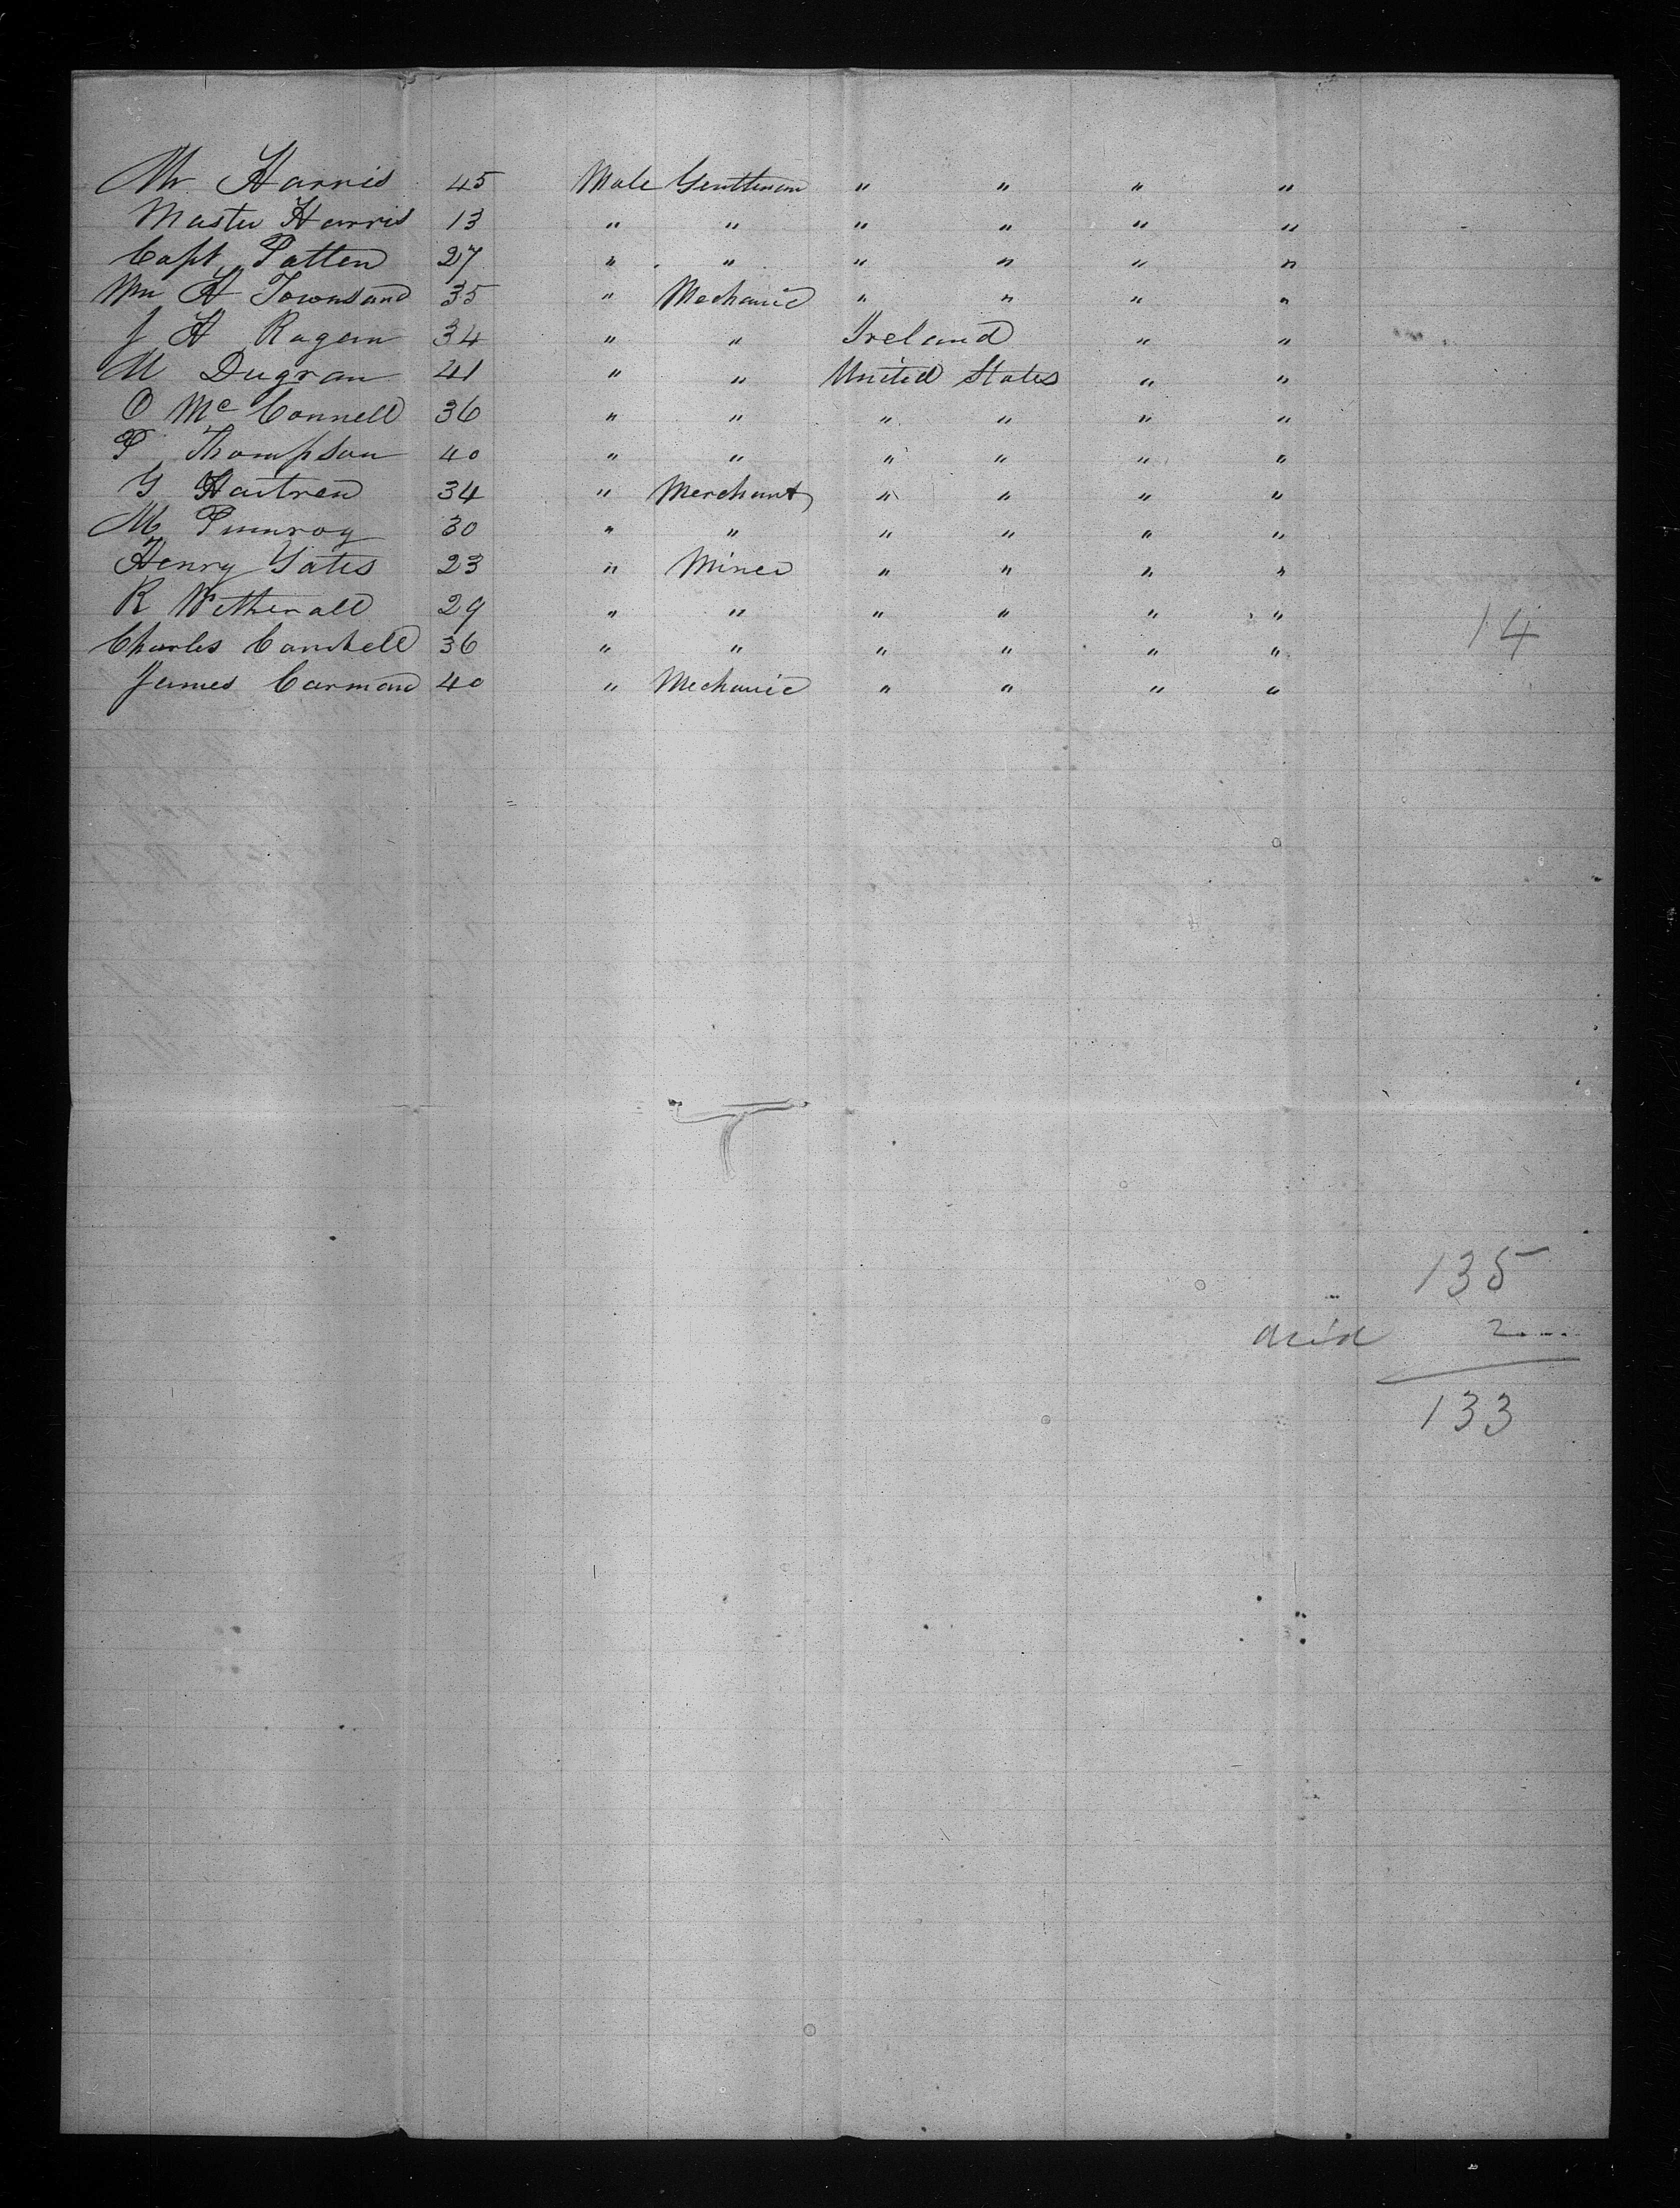 Mr Harris 45 Male Gentleman " " " "
Master Harris 13 " " " " " "
Capt Patten 27 " " " " " "
Wm H Townsand 35 " Mechanic " " " "
J H Ragan 34 " " Ireland " "
M Dugran 41 " " United States " "
O Mc Connell 36 " " " " " "
P Thompson 40 " " " " " "
G 34 " Merchant " " " "
M 30 " " " " " "
Henry Yates 23 " Miner " " " "
R Witherall 29 " " " " " "
14
Charles Cambell 36 " " " " " "
James Carman 40 " Mechanic " " " "
135
died 2
133